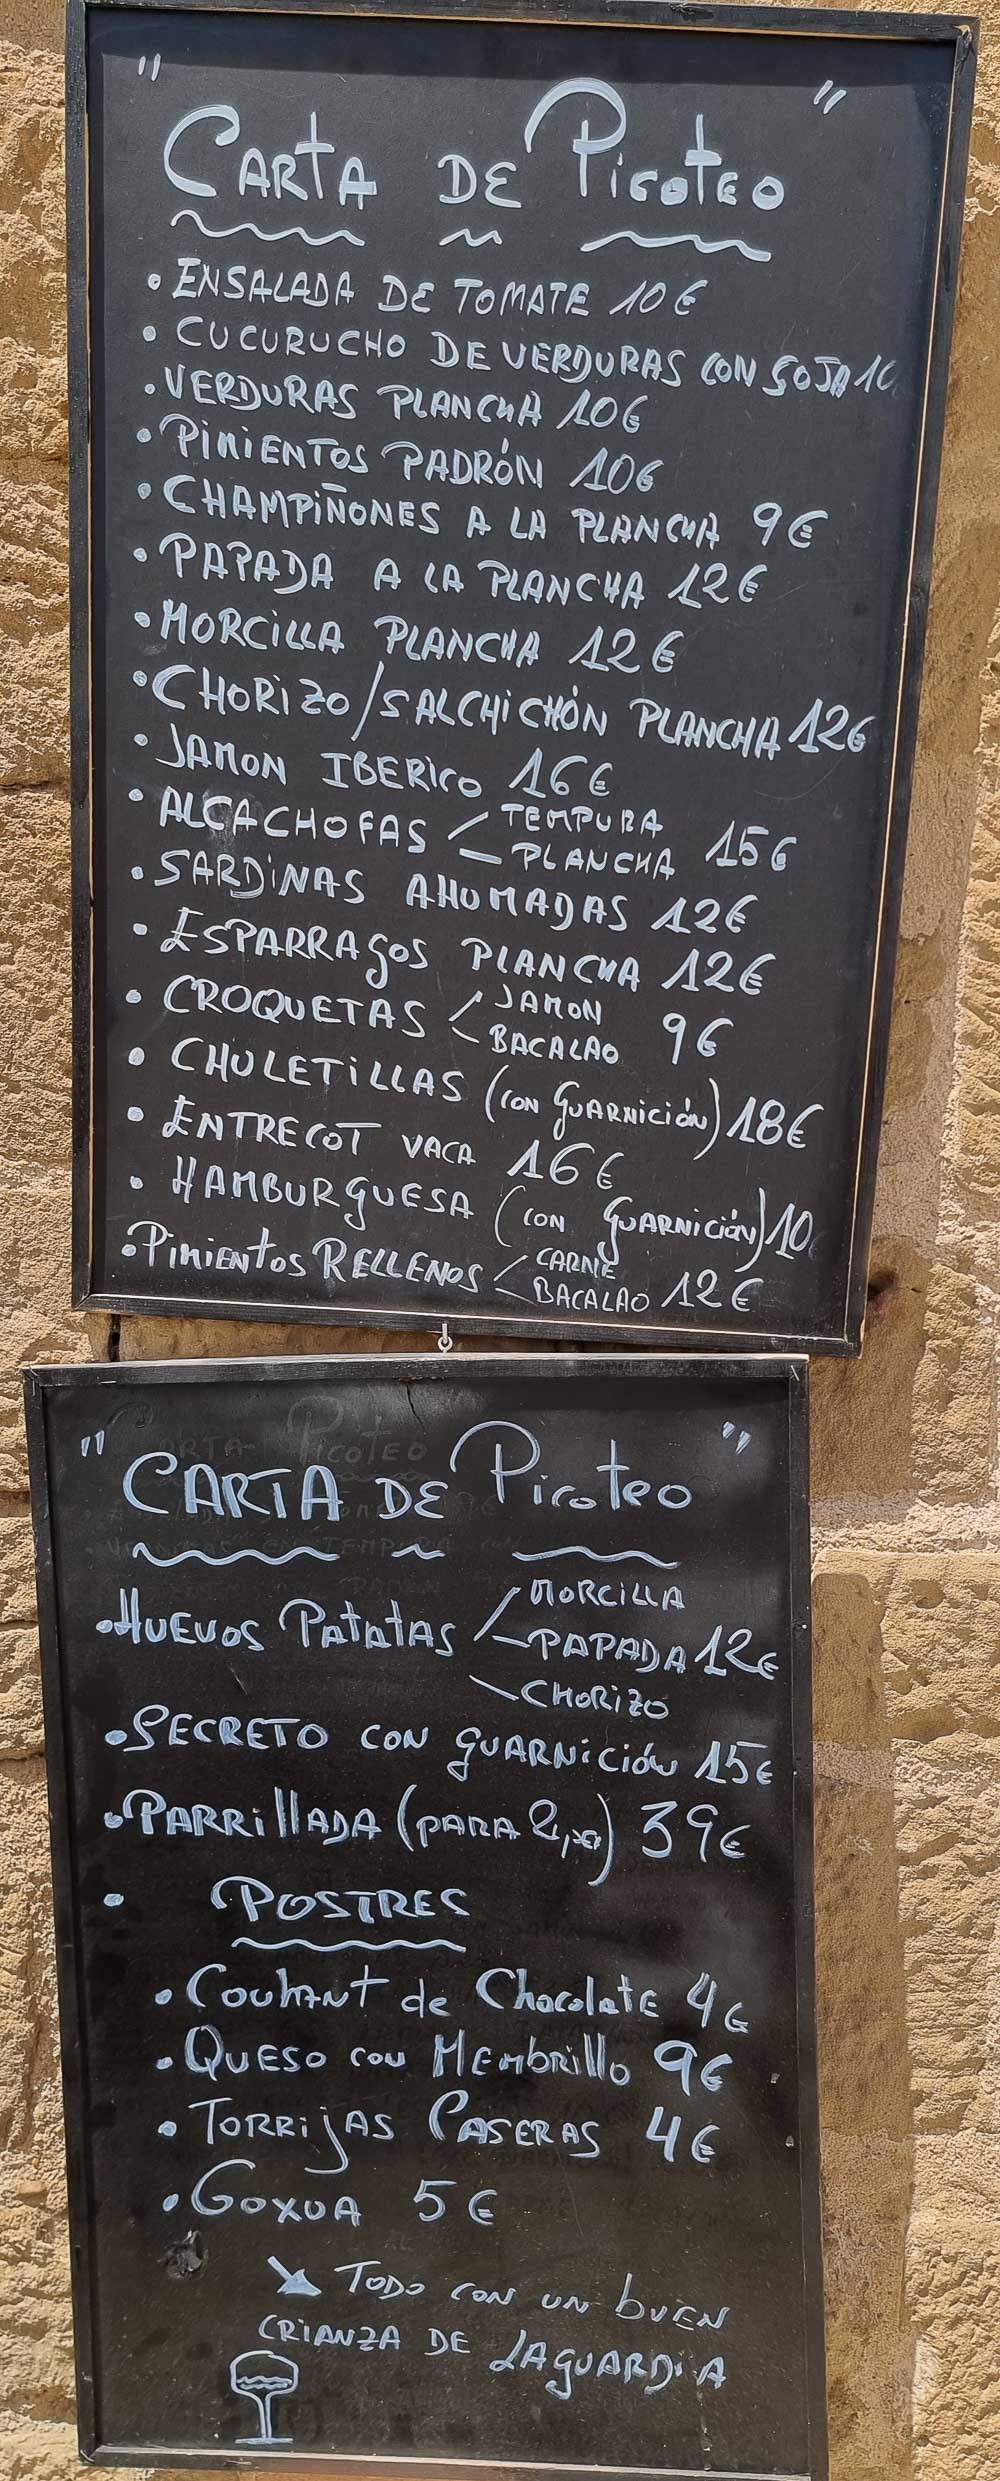 " CARTA DE Picoteo "
• ENSALADA DE TOMATE 10€
• CUCURUCHO DE VERDURAS CON SOJA 10
• VERDURAS PLANCHA 10€
• PIMIENTOS PADRÓN 10€
• CHAMPIÑONES A LA PLANCHA 9€
• PAPADA A LA PLANCHA 12€
• MORCILLA PLANCHA 12€
• CHORIZO/SALCHICHÓN PLANCHA 12€
• JAMON IBERICO 16€
• ALCACHOFAS TEMPURA
PLANCHA 15€
• SARDINAS AHUMADAS 12€
• ESPARRAGOS PLANCHA 12€
• CROQUETAS JAMON
BACALAO 9€
• CHULETILLAS (CON GUARNICIÓN) 18€
• ENTRECOT VACA 16€
• HAMBURGUESA (CON GUARNICIÓN) 10
• PIMIENTOS RELLENOS CARNE
BACALAO 12€
" CARTA DE Picoteo "
• HUEVOS PATATAS MORCILLA
PAPADA 12€
CHORIZO
• SECRETO CON GUARNICIÓN 15€
• PARRILLADA (PARA 2 ) 39€
• POSTRES
• Coulant de Chocolate 4€
• QUESO CON MEMbrillo 9€
• TORRIJAS CASERAS 4€
• GOXUA 5€
TODO CON UN buEN
CRIANZA DE LAGUARDIA